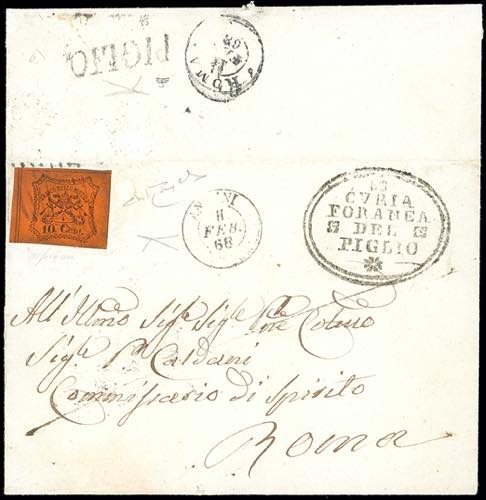 PIGLIO
ROMA
68
10 Cent.
ANAGNI
11
FEB.
68
CVRIA
FORANEA
DEL
PIGLIO
All' Illmo Sigr Sigr Pne Colmo
Sigr
Caldani
Commissario di Spirito
Roma